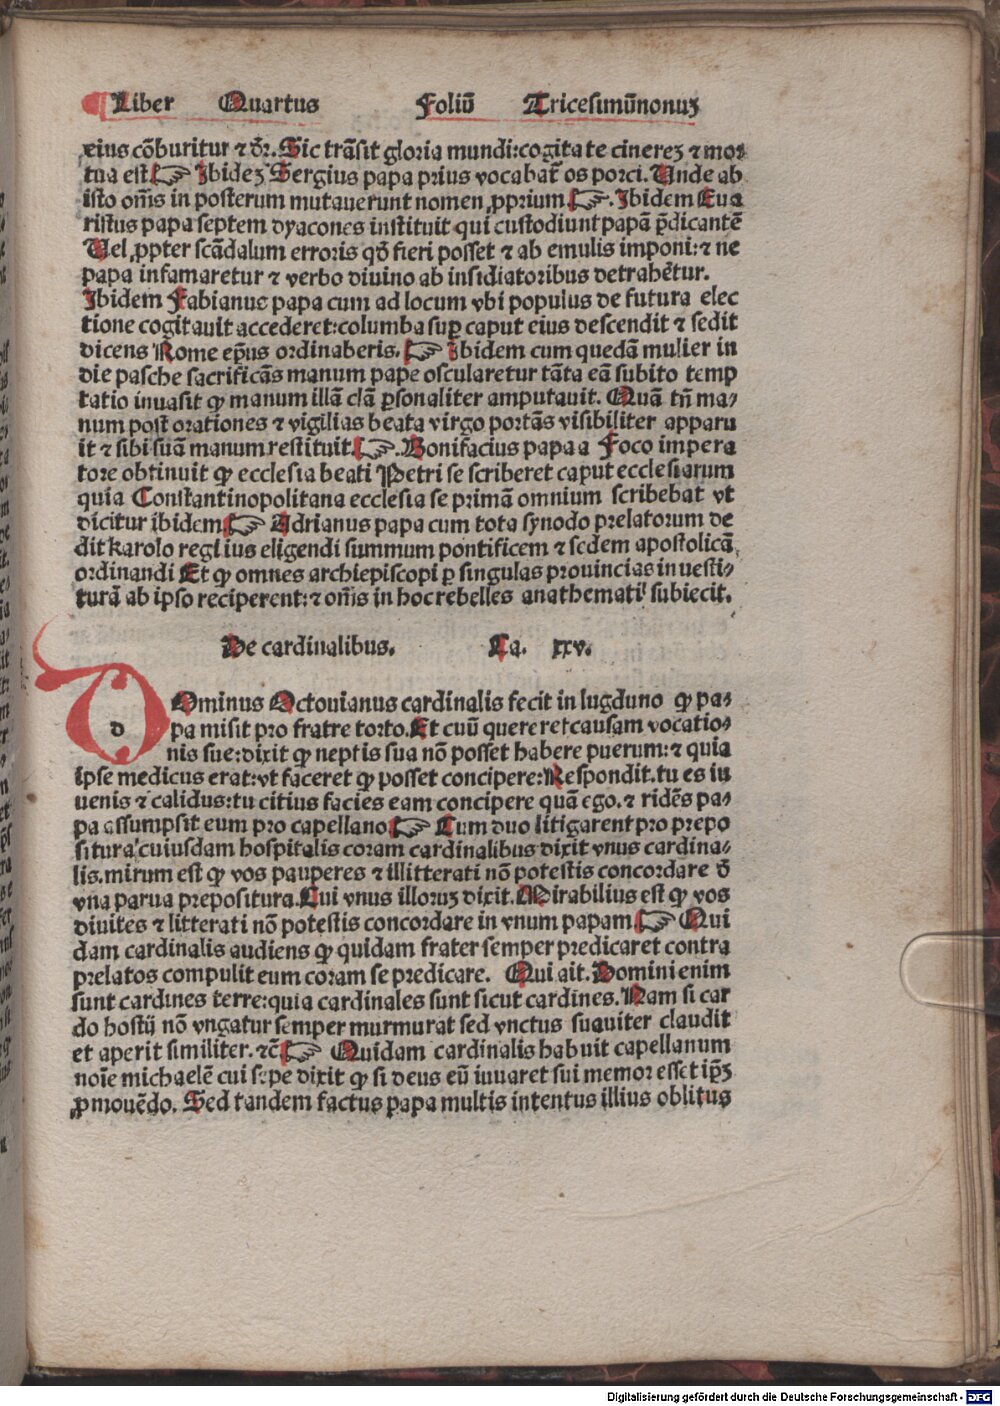 Liber Quartus Foliū Tricesimūnonuʒ
eius cōburitur ⁊ dr̄. Sic trāsit gloria mundi:cogita te cinereʒ ⁊ mor⸗
tua est☞ Ibideʒ Sergius papa prius vocabat᷑ os porci. Unde ab
isto om̄s in posterum mutauerunt nomen ꝓprium☞. Ibidem Eua
ristus papa septem dyacones instituit qui custodiunt papā p̄dicantē
Uel ꝓpter scādalum erroris qd̄ fieri posset ⁊ ab emulis imponi:⁊ ne
papa infamaretur ⁊ verbo diuino ab insidiatoribus detrahētur.
Ibidem Fabianus papa cum ad locum vbi populus de futura elec
tione cogitauit accederet:columba suꝑ caput eius descendit ⁊ sedit
dicens Rome ep̄us ordinaberis.☞ Ibidem cum quedā mulier in
die pasche sacrificās manum pape oscularetur tāta eā subito temp
tatio inuasit ꝙ manum illā clā ꝑsonaliter amputauit. Quā tn̄ ma⸗
num post orationes ⁊ vigilias beata virgo portās visibiliter apparu
it ⁊ sibi suā manum restituit.☞.Bonifacius papa a Foco impera
tore obtinuit ꝙ ecclesia beati Petri se scriberet caput ecclesiarum
quia Constantinopolitana ecclesia se primā omnium scribebat vt
dicitur ibidem☞ Adrianus papa cum tota synodo prelatorum de
dit karolo regi ius eligendi summum pontificem ⁊ sedem apostolicā
ordinandi Et ꝙ omnes archiepiscopi ꝑ singulas prouincias inuesti⸗
turā ab ipso reciperent:⁊ om̄s in hoc rebelles anathemati subiecit.
De cardinalibus. Ca. xxv.
dOminus Octouianus cardinalis fecit in lugduno ꝙ pa⸗
pa misit pro fratre torto.Et cuū quereret causam vocatio⸗
nis sue:dixit ꝙ neptis sua nō posset habere puerum:⁊ quia
ipse medicus erat:vt faceret ꝙ posset concipere:Respondit.tu es iu
uenis ⁊ calidus:tu citius facies eam concipere quā ego.⁊ ridēs pa⸗
pa assumpsit eum pro capellano☞ Cum duo litigarent pro prepo
situra cuiusdam hospitalis coram cardinalibus dixit vnus cardina⸗
lis.mirum est ꝙ vos pauperes ⁊ illitterati nō potestis concordare d̄
vna parua prepositura.Cui vnus illoruʒ dixit.Mirabilius est ꝙ vos
diuites ⁊ litterati nō potestis concordare in vnum papam☞ Qui
dam cardinalis audiens ꝙ quidam frater semper predicaret contra
prelatos compulit eum coram se predicare. Qui ait.Domini enim
sunt cardines terre:quia cardinales sunt sicut cardines.Nam si car
do hostij nō vngatur semper murmurat sed vnctus suauiter claudit
et aperit similiter.⁊c̄☞ Quidam cardinalis habuit capellanum
noīe michaelē cui sepe dixit ꝙ si deus eū iuuaret sui memor esset ip̄ʒ
ꝓmouēdo. Sed tandem factus papa multis intentus illius oblitus
Digitalisierung gefördert durch die Deutsche Forschungsgemeinschaft - DFG